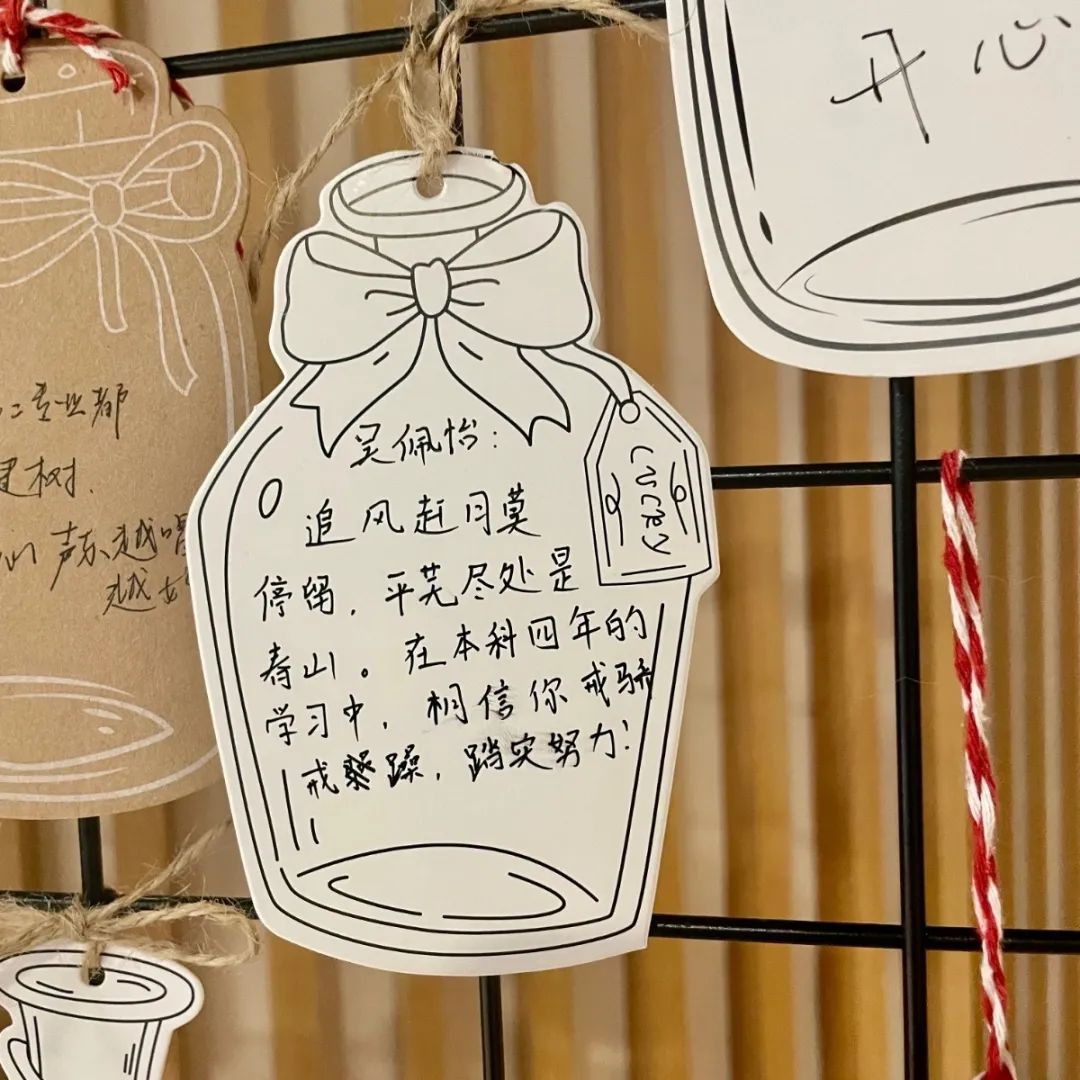 开心
吴佩怡：
追风赶月莫
停留，平芜尽处是
春山。在本科四年的
学习中，相信你戒骄
戒躁，踏实努力！
LUCKY
专业都
建树.
声乐越唱
越